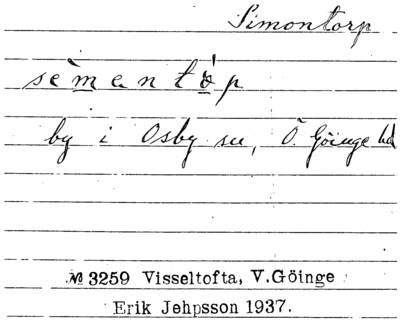 Simontorp
sèmentòp
by i Osby sn, Ö. Göinge hd
№ 3259 Visseltofta, V.Göinge
Erik Jehpsson 1937.